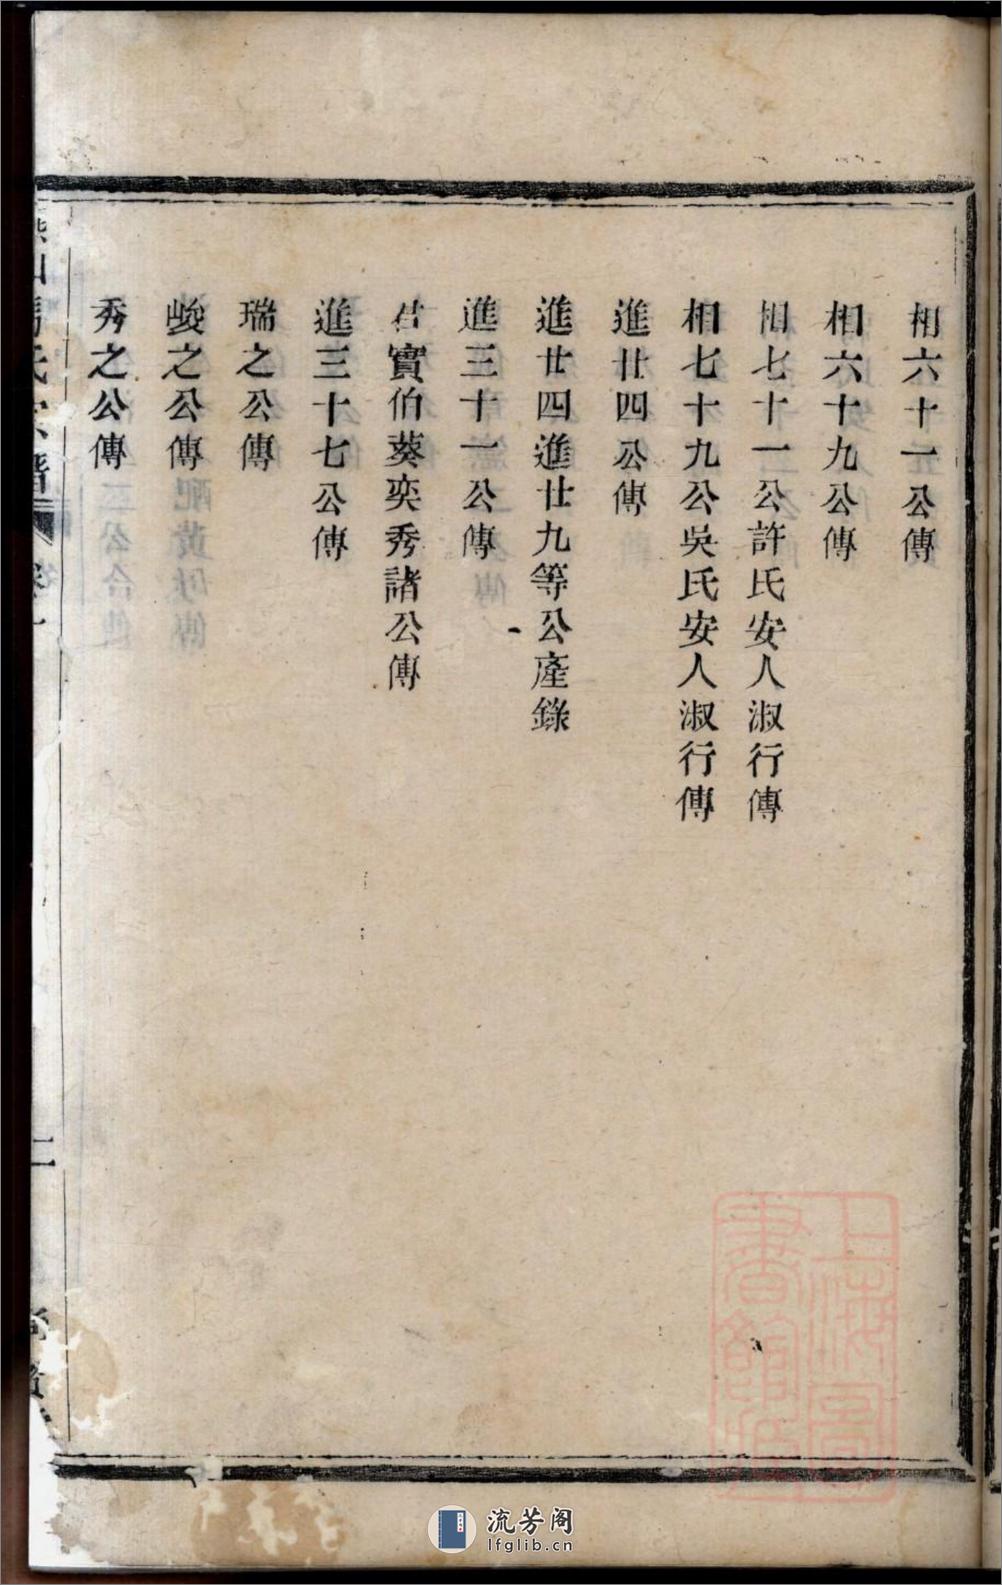 相六十一公傳
相六十九公傳
相七十一公許氏安人淑行傳
相七十九公吳氏安人淑行傳
進廿四公傳
進廿四進廿九等公產錄
進三十一公傳
君實伯葵奕秀諸公傳
進三十七公傳
瑞之公傳
峻之公傳
秀之公傳
二
上海圖
書館藏
流芳阁
lfglib.cn